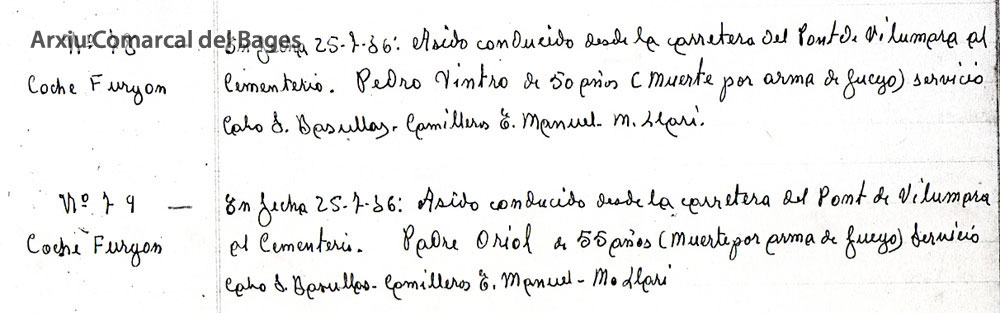 Arxiu Comarcal del Bages
Nº 78
En fecha 25-7-36: Asido conducido desde la carretera del Pont de Vilumara al
Coche Furgon
Cementerio. Pedro Vintro de 50 años (Muerte por arma de fuego) servicio
Cabo S. Basullas. Camilleros E. Manuel- M. Llari.
Nº 79 —
En fecha 25-7-36: Asido conducido desde la carretera del Pont de Vilumara
Coche Furgon
al Cementerio. Padre Oriol de 55 años (Muerte por arma de fuego) Servicio
Cabo S. Basullas- Camilleros E. Manuel- M. Llari